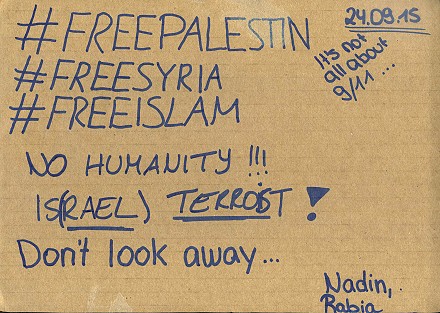 #FREEPALESTIN
24.09.15
It's not
all about
9/11 ...
#FREESYRIA
#FREEISLAM
NO HUMANITY !!!
IS(RAEL) TERRORIST !
Don't look away...
Nadin,
Rabia